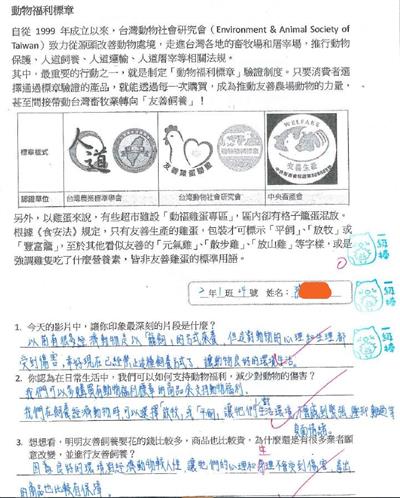 動物福利標章
自從 1999 年成立以來，台灣動物社會研究會（Environment & Animal Society of
Taiwan）致力從源頭改善動物處境，走進台灣各地的畜牧場和屠宰場，推行動物
保護、人道飼養、人道運輸、人道屠宰等相關法規。
其中，最重要的行動之一，就是制定「動物福利標章」驗證制度。只要消費者選
擇通過標章驗證的產品，就能透過每一次購買，成為推動友善農場動物的力量，
甚至間接帶動台灣畜牧業轉向「友善飼養」！
標章樣式
人道
友善雞蛋聯盟
動物福利標章
WELFARE
友善生產
認證單位
台灣農業標準學會
台灣動物社會研究會
中央畜產會
另外，以雞蛋來說，有些超市雖設「動福雞蛋專區」，區內卻有格子籠蛋混放。
根據《食安法》規定，只有友善生產的雞蛋，包裝才可標示「平飼」、「放牧」或
「豐富籠」，至於其他看似友善的「元氣雞」、「散步雞」、「放山雞」等字樣，或是
強調雞隻吃了什麼營養素，皆非友善雞蛋的標準用語。
一級棒
2年1班 號 姓名：
一級棒
1. 今天的影片中，讓你印象最深刻的片段是什麼？
以前有很多經濟動物是以「籠飼」的方式來養，但是對動物的心理和生理都
受到傷害，幸好現在已經禁止這種飼養方式了，讓動物更好的環境生活。
2. 你認為在日常生活中，我們可以如何支持動物福利，減少對動物的傷害？
我們可以多購買有動物福利標章的商品來支持動物福利。
我們在飼養經濟動物時可以選擇放牧，或「平飼」，讓他們
負面情緒。
3. 想想看，明明友善飼養要花的錢比較多，商品也比較貴，為什麼還是有很多業者願
意改變，並進行友善飼養？
因為良好的環境對經濟動物較人性，讓他們的心理和生理不會受到傷害，產出
的商品也比較有保障。